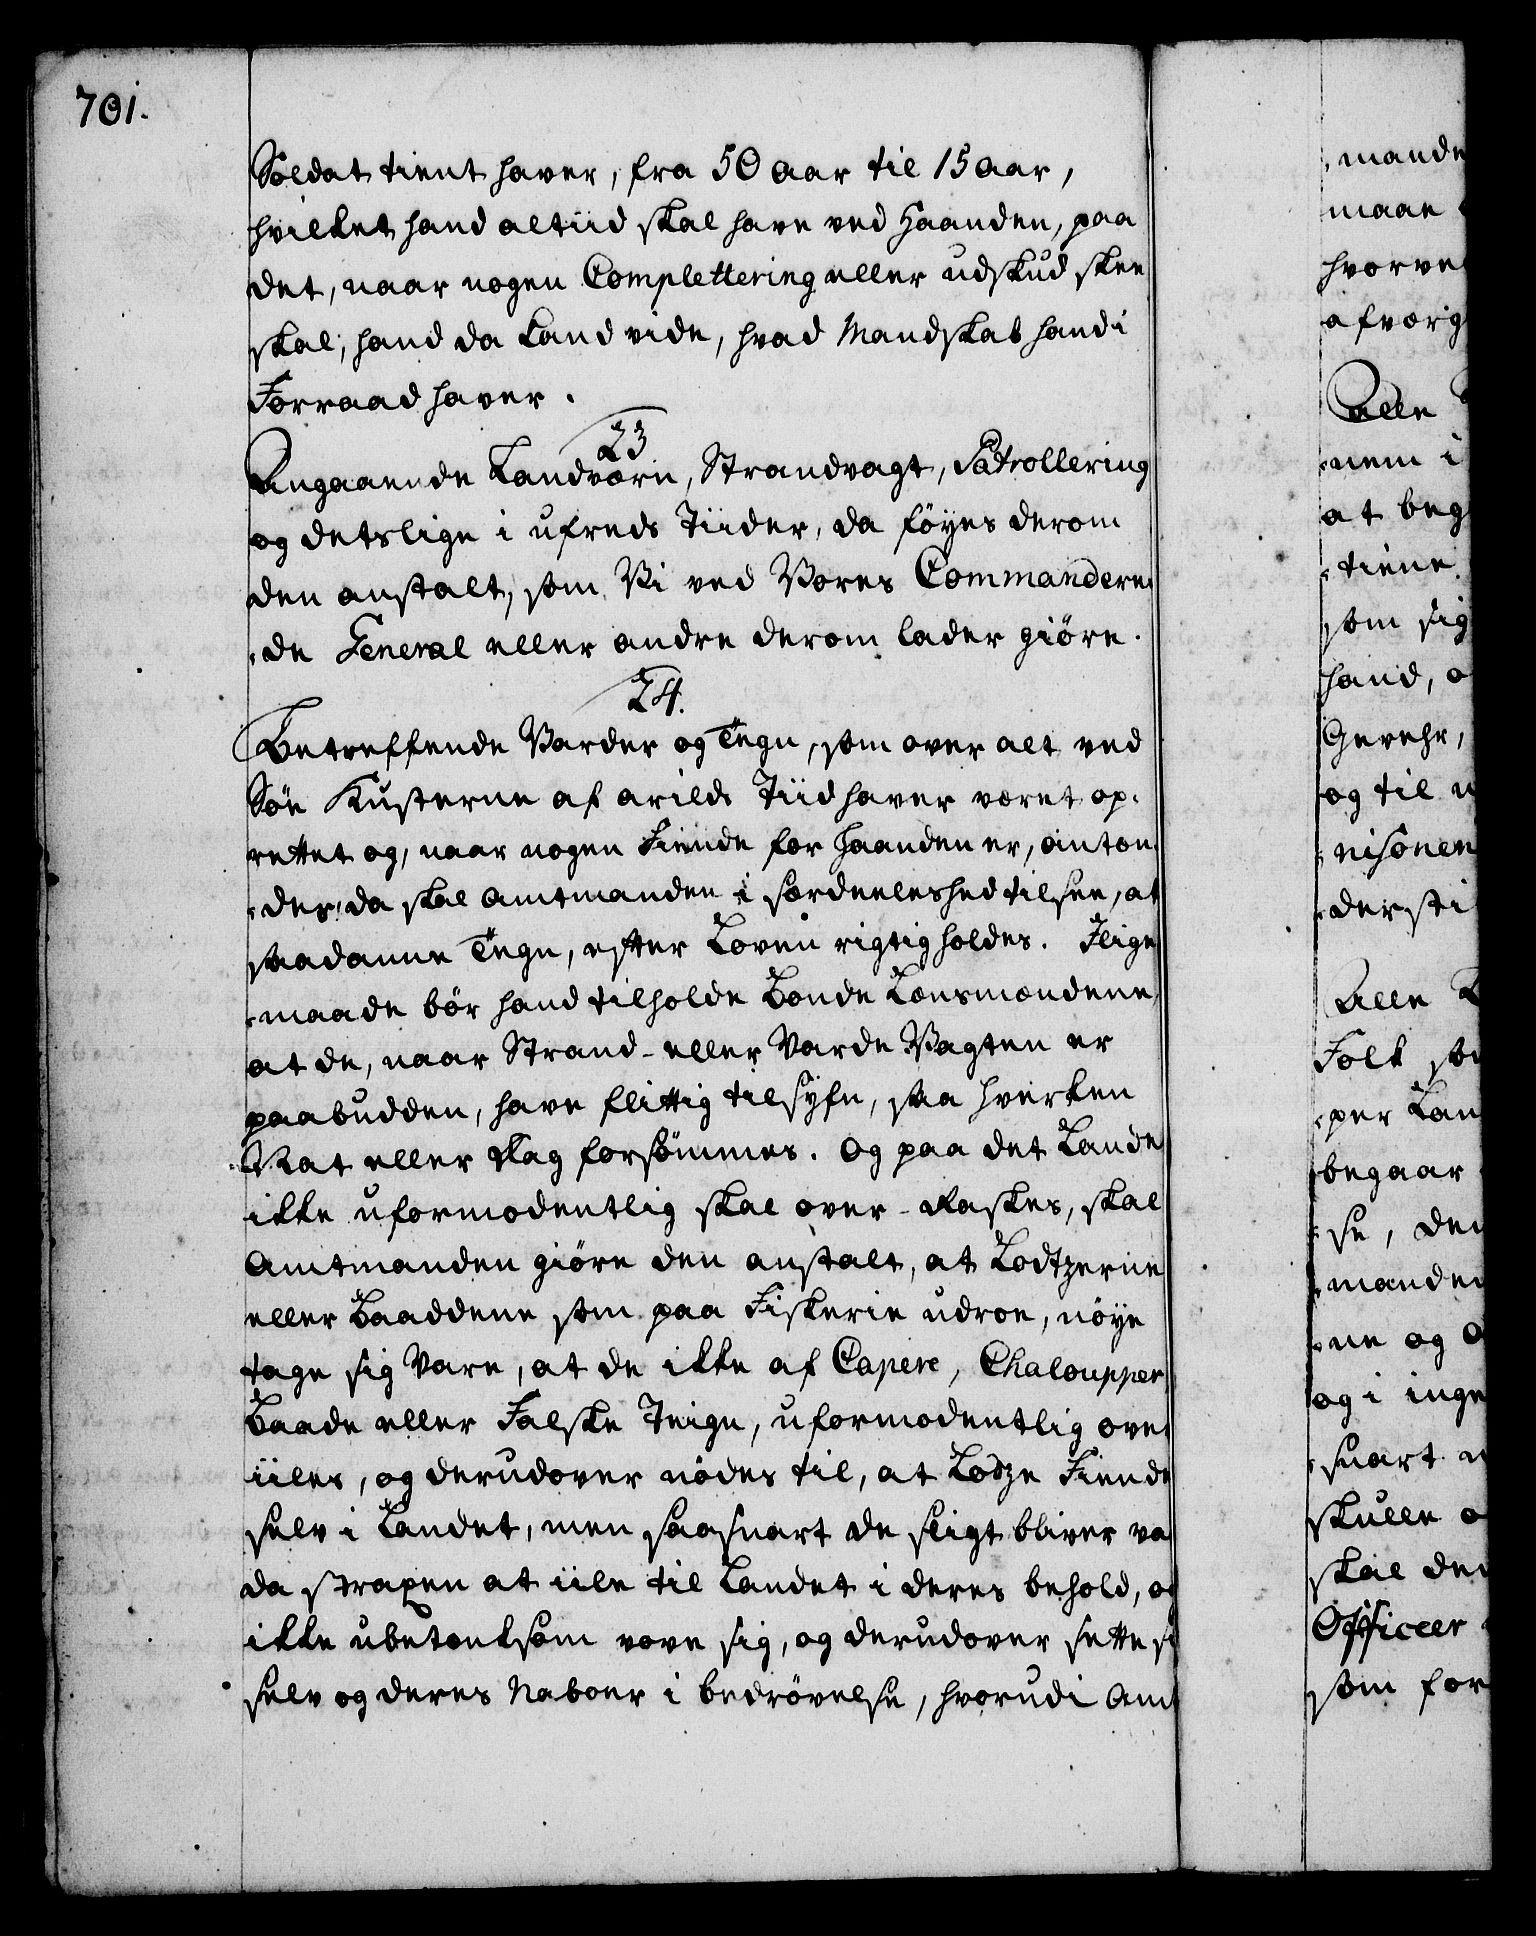 701.
Soldat tient haver, fra 50 aar til 15 aar,
hvilket hand altiid skal have ved Haanden, paa
det, naar nogen Complettering eller udskud skee
skal, hand da kand vide, hvad Mandskab hand i
Forraad haver.
23
Angaaende Landværn, Strandvagt, Patrollering
og detslige i ufreds Tiider, da föyes derom
den anstalt, som Vi ved Vores Commanderen
de General eller andre derom lader giöre.
24.
Betreffende Varder og Tegn, som over alt ved
Söe Kusterne af arilds Tiid haver været op-
rettet og, naar nogen Fiende for Haanden er, anton
des, da skal Amtmanden i særdeeleshed tilsee, at
saadanne Tegn, efter Loven rigtig holdes. Ilige
maade bör hand tilholde Bonde Lænsmændene
at de, naar Strand- eller Varde Vagten er
paabudden, have flittig tilsyfn, saa hverken
Nat eller Dag forsömmes. Og paa det Lande
ikke uformodentlig skal over-Raskes, skal
Amtmanden giöre den anstalt, at Lodtzerne
eller Baaddene som paa Fiskerie udroe, nöye
tage sig Vare, at de ikke af Capere, Chalouppper
Baade eller Falske Teign, uformodentlig over
iiles, og derudover nödes til, at Lodze Fiende
selv i Landet, men saasnart de sligt bliver va
da straxen at iile til Landet i deres behold, og
ikke ubetænksom vove sig, og derudover sette si
selv og deres Naboer i bedrövelse, hvorudi Amt
mande
maae
hvorve
afværg
Alle
nem i
at beg
tiene
som sig
hand, o
Gevehr,
og til
nisonen
dersti
Alle
Folk so
per Lan
begaar
se, den
manden
ne og O
og i inge
snart
skulle o
skal den
Officeer
som for